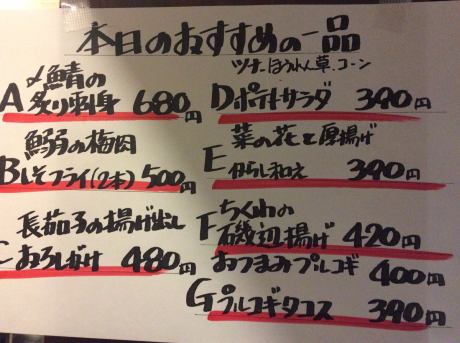 本日のおすすめの一品
A 〆鯖の
炙り刺身 680円
B 鰯の梅肉
しそフライ(2本) 500円
C 長茄子の揚げ出し
おろしがけ 480円
ツナ、ほうれん草、コーン
D ポテトサラダ 390円
E 菜の花と厚揚げ
からし和え 390円
F ちくわの
磯辺揚げ 420円
おつまみプルコギ 400円
G プルコギタコス 390円